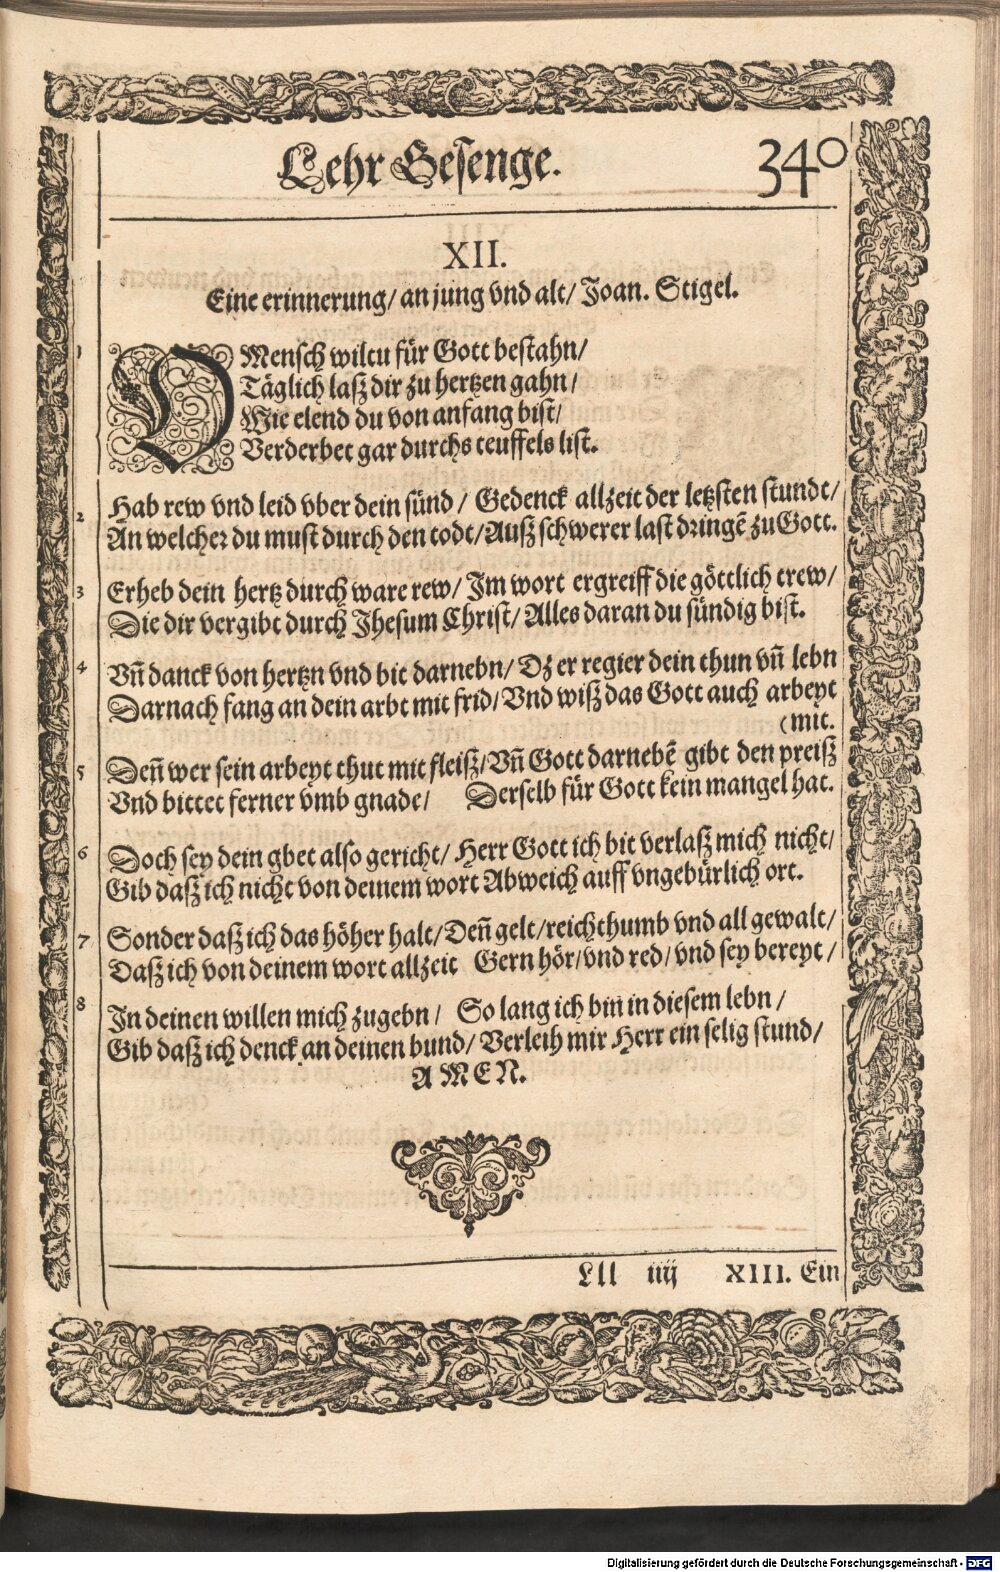 Lehr Gesenge. 340
XII.
Eine erinnerung/ an jung vnd alt/ Joan. Stigel.
1 O Mensch wiltu für Gott bestahn/
Täglich laß dir zu hertzen gahn/
Wie elend du von anfang bist/
Verderbet gar durchs teuffels list.
2 Hab rew vnd leid vber dein sünd/ Gedenck allzeit der letzsten stundt/
An welcher du must durch den todt/ Auß schwerer last dringē zu Gott.
3 Erheb dein hertz durch ware rew/ Im wort ergreiff die göttlich trew/
Die dir vergibt durch Jhesum Christ/ Alles daran du sündig bist.
4 Vñ danck von hertzn vnd bit darnebn/ Dz er regier dein thun vñ lebn
Darnach fang an dein arbt mit frid/ Vnd wiß das Gott auch arbeyt
(mit.
5 Deñ wer sein arbeyt thut mit fleiß/ Vñ Gott darnebē gibt den preiß
Vnd bittet ferner vmb gnade/ Derselb für Gott kein mangel hat.
6 Doch sey dein gbet also gericht/ Herr Gott ich bit verlaß mich nicht/
Gib daß ich nicht von deinem wort Abweich auff vngebürlich ort.
7 Sonder daß ich das höher halt/ Deñ gelt/ reichthumb vnd all gewalt/
Daß ich von deinem wort allzeit Gern hör/ vnd red/ vnd sey bereyt/
8 In deinen willen mich zugebn/ So lang ich bin in diesem lebn/
Gib daß ich denck an deinen bund/ Verleih mir Herr ein selig stund/
AMEN.
Lll iiij XIII. Ein
Digitalisierung gefördert durch die Deutsche Forschungsgemeinschaft - DFG